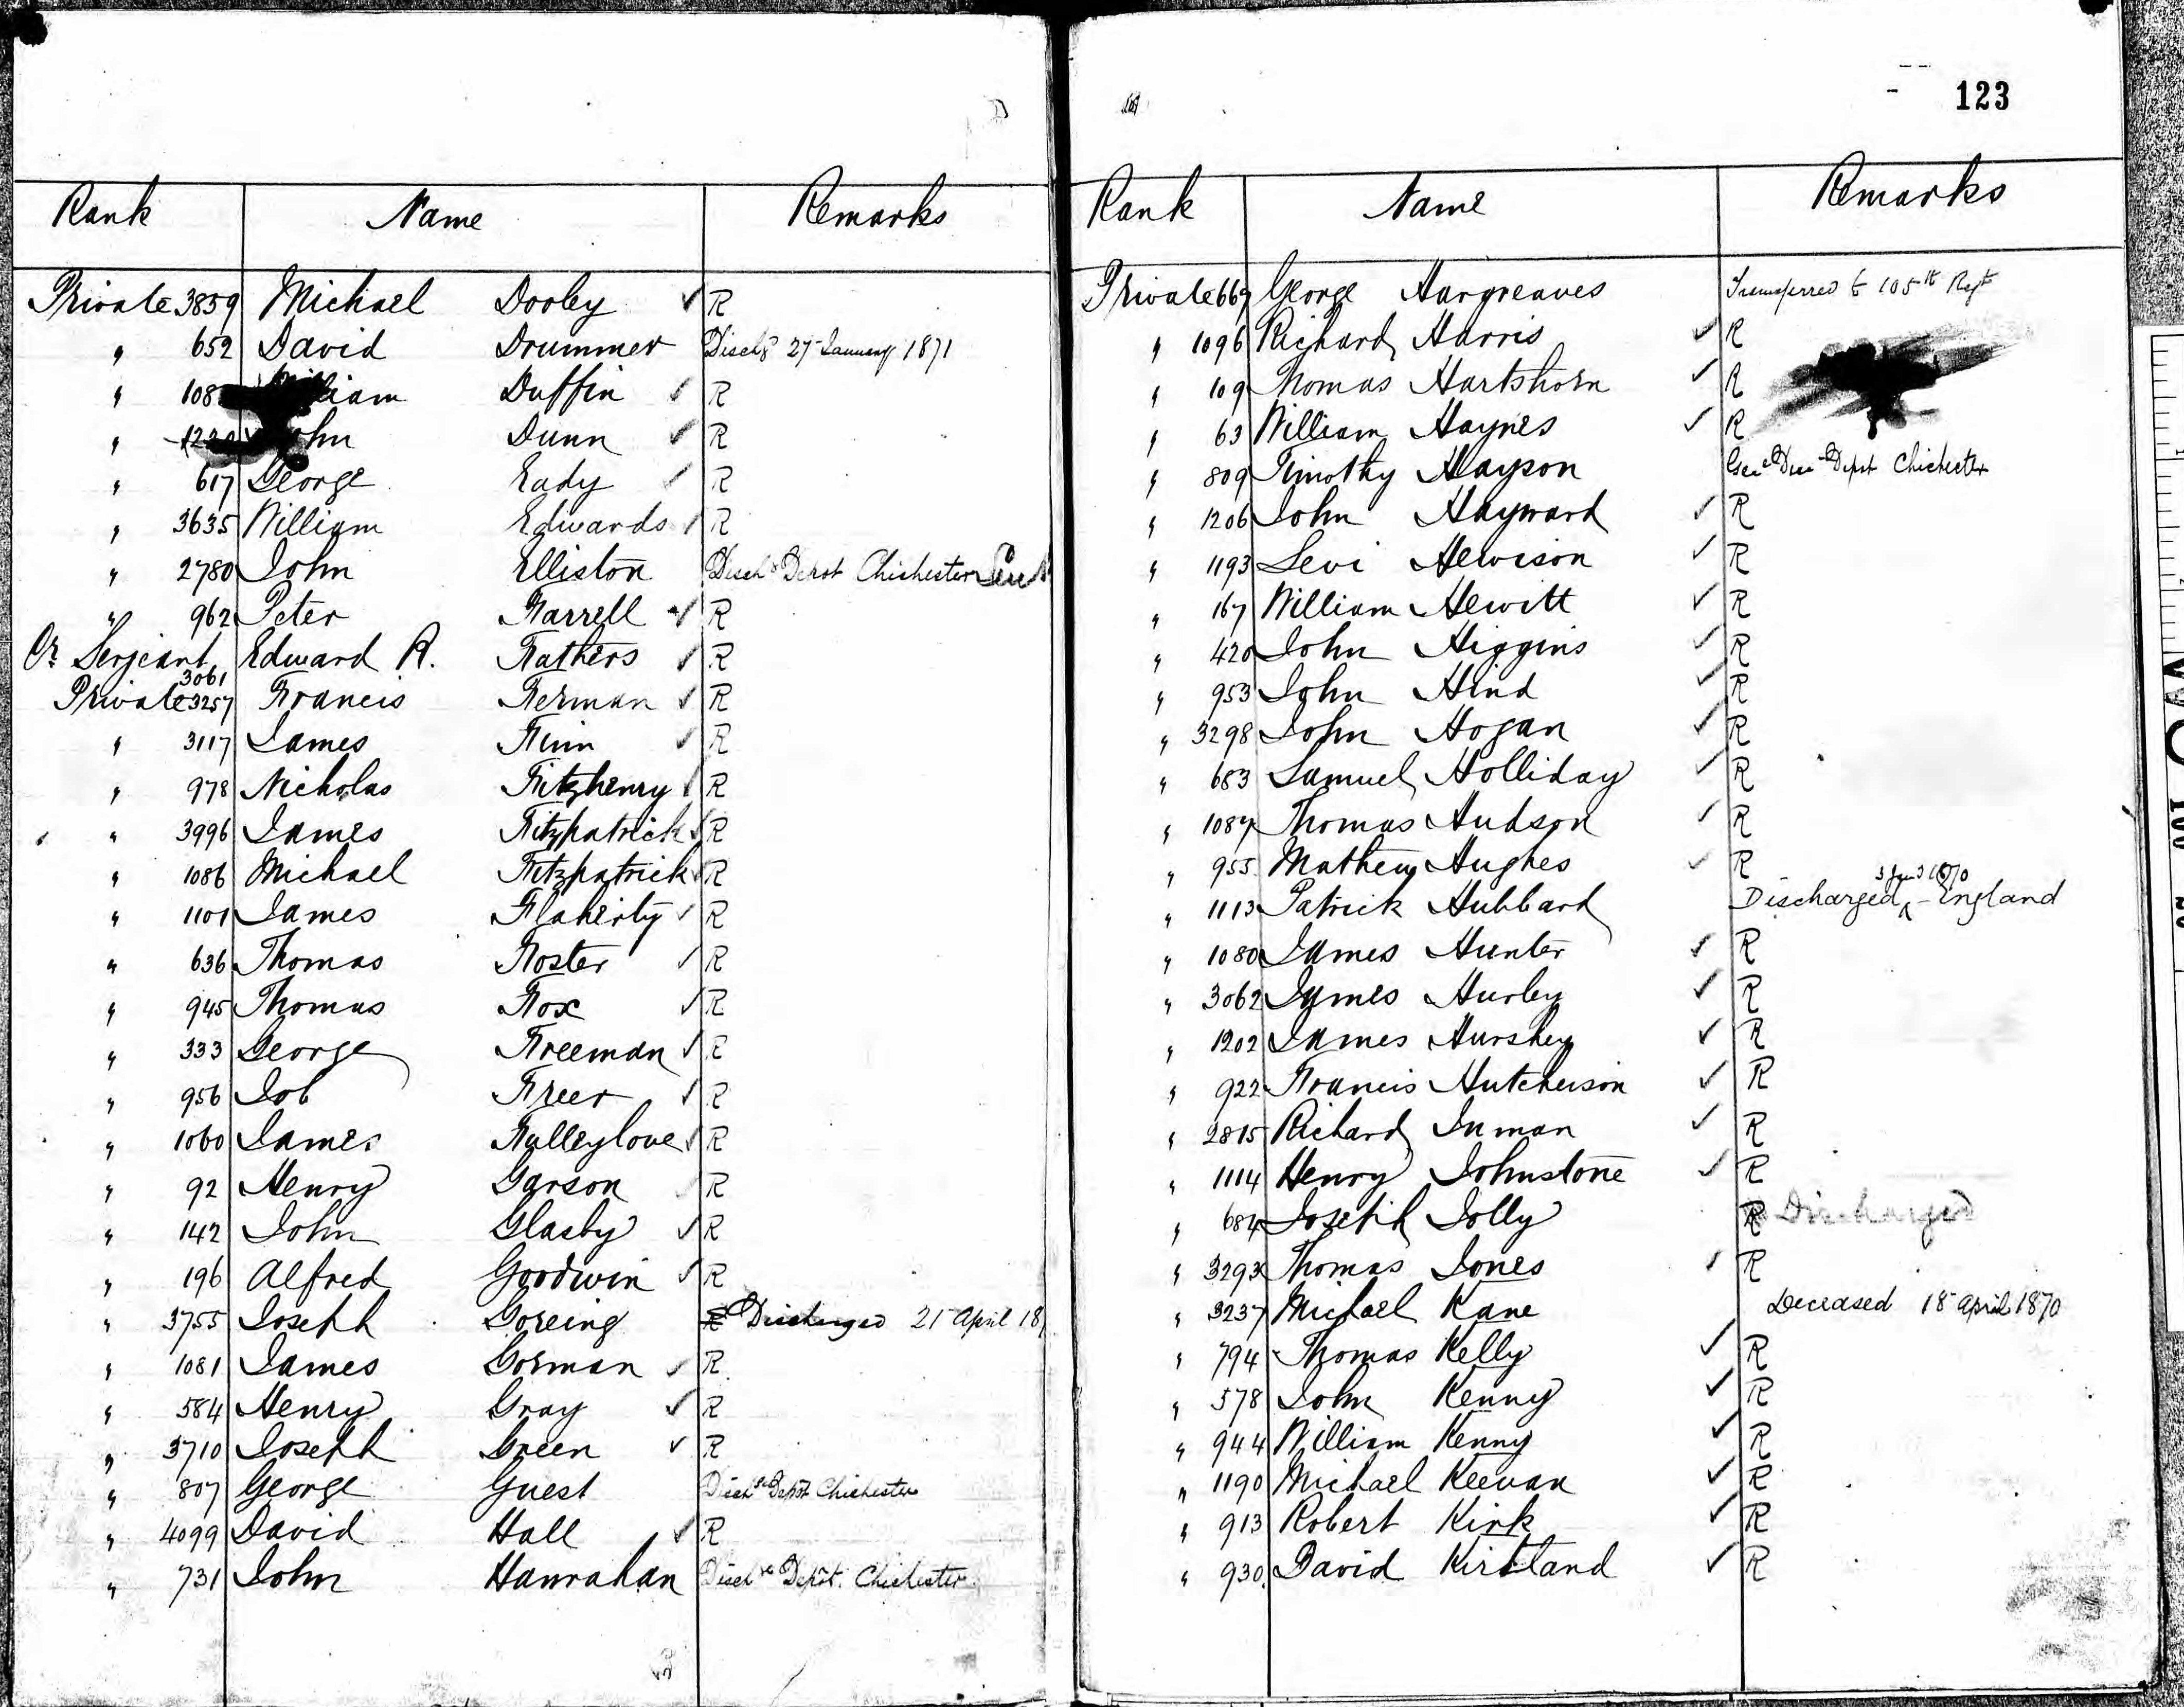 123
Rank Name Remarks
Private 3859 Michael Dooley ✓ R
" 652 David Drummer Dischd 27 January 1871
" 108 William Duffin ✓ R
" John Dunn ✓ R
" 617 George Eady ✓ R
" 3635 William Edwards ✓ R
" 2780 John Elliston Dischd Depot Chichester
" 962 Peter Farrell ✓ R
Or Serjeant 3061 Edward R. Fathers ✓ R
Private 3257 Francis Ferman ✓ R
" 3117 James Finn ✓ R
" 978 Nicholas Fitzhenry ✓ R
" 3996 James Fitzpatrick ✓ R
" 1086 Michael Fitzpatrick ✓ R
" 1101 James Flaherty ✓ R
" 636 Thomas Foster ✓ R
" 945 Thomas Fox ✓ R
" 333 George Freeman ✓ R
" 956 Job Freer ✓ R
" 1060 James Fulleylove ✓ R
" 92 Henry Garson ✓ R
" 142 John Glasby ✓ R
" 196 Alfred Goodwin ✓ R
" 3755 Joseph Goreing R Discharged 21 April 18
" 1081 James Gorman ✓ R
" 584 Henry Gray ✓ R
" 3710 Joseph Green ✓ R
" 807 George Guest Dischd Depôt Chichester
" 4099 David Hall ✓ R
" 731 John Hanrahan Dischd Depôt Chichester
Rank Name Remarks
Private 667 George Hargreaves Transferred to 105th Regt
" 1096 Richard Harris ✓ R
" 109 Thomas Hartshorn ✓ R
" 63 William Haynes ✓ R
" 809 Timothy Hayson Depot Chichester
" 1206 John Hayward ✓ R
" 1193 Levi Hewison ✓ R
" 167 William Hewitt ✓ R
" 420 John Higgins ✓ R
" 953 John Hind ✓ R
" 3298 John Hogan ✓ R
" 683 Samuel Holliday ✓ R
" 1087 Thomas Hudson ✓ R
" 955 Mathew Hughes ✓ R
" 1113 Patrick Hubbard Discharged - England
" 1080 James Hunter ✓ R
" 3062 James Hurley ✓ R
" 1202 James Hurshey ✓ R
" 922 Francis Hutcheison ✓ R
" 2815 Richard Inman ✓ R
" 1114 Henry Johnstone ✓ R
" 684 Joseph Jolly R Discharged
" 3293 Thomas Jones ✓ R
" 3237 Michael Kane Deceased 18 April 1870
" 794 Thomas Kelly ✓ R
" 578 John Kenny ✓ R
" 944 William Kenny ✓ R
" 1190 Michael Keevan ✓ R
" 913 Robert Kirk ✓ R
" 930 David Kirkland ✓ R